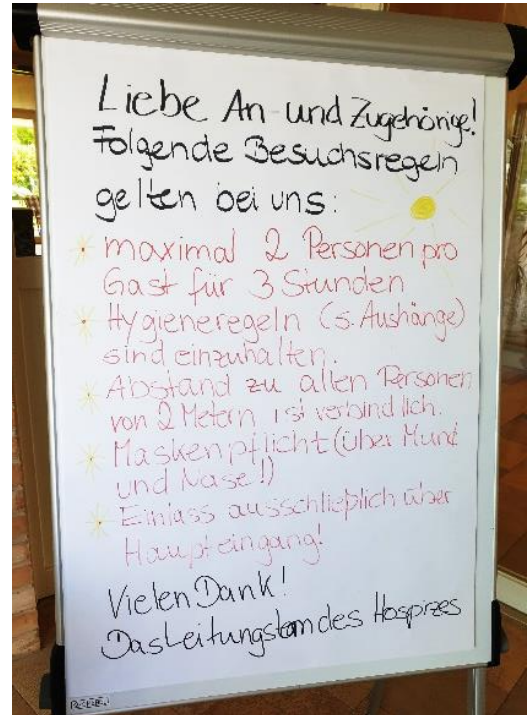 Liebe An- und Zugehörige!
Folgende Besuchsregeln
gelten bei uns:
* maximal 2 Personen pro
Gast für 3 Stunden
* Hygieneregeln (s. Aushänge)
sind einzuhalten.
* Abstand zu allen Personen
von 2 Metern ist verbindlich.
* Maskenpflicht (über Mund
und Nase!)
* Einlass ausschließlich über
Haupteingang!
Vielen Dank!
Das Leitungsteam des Hospizes